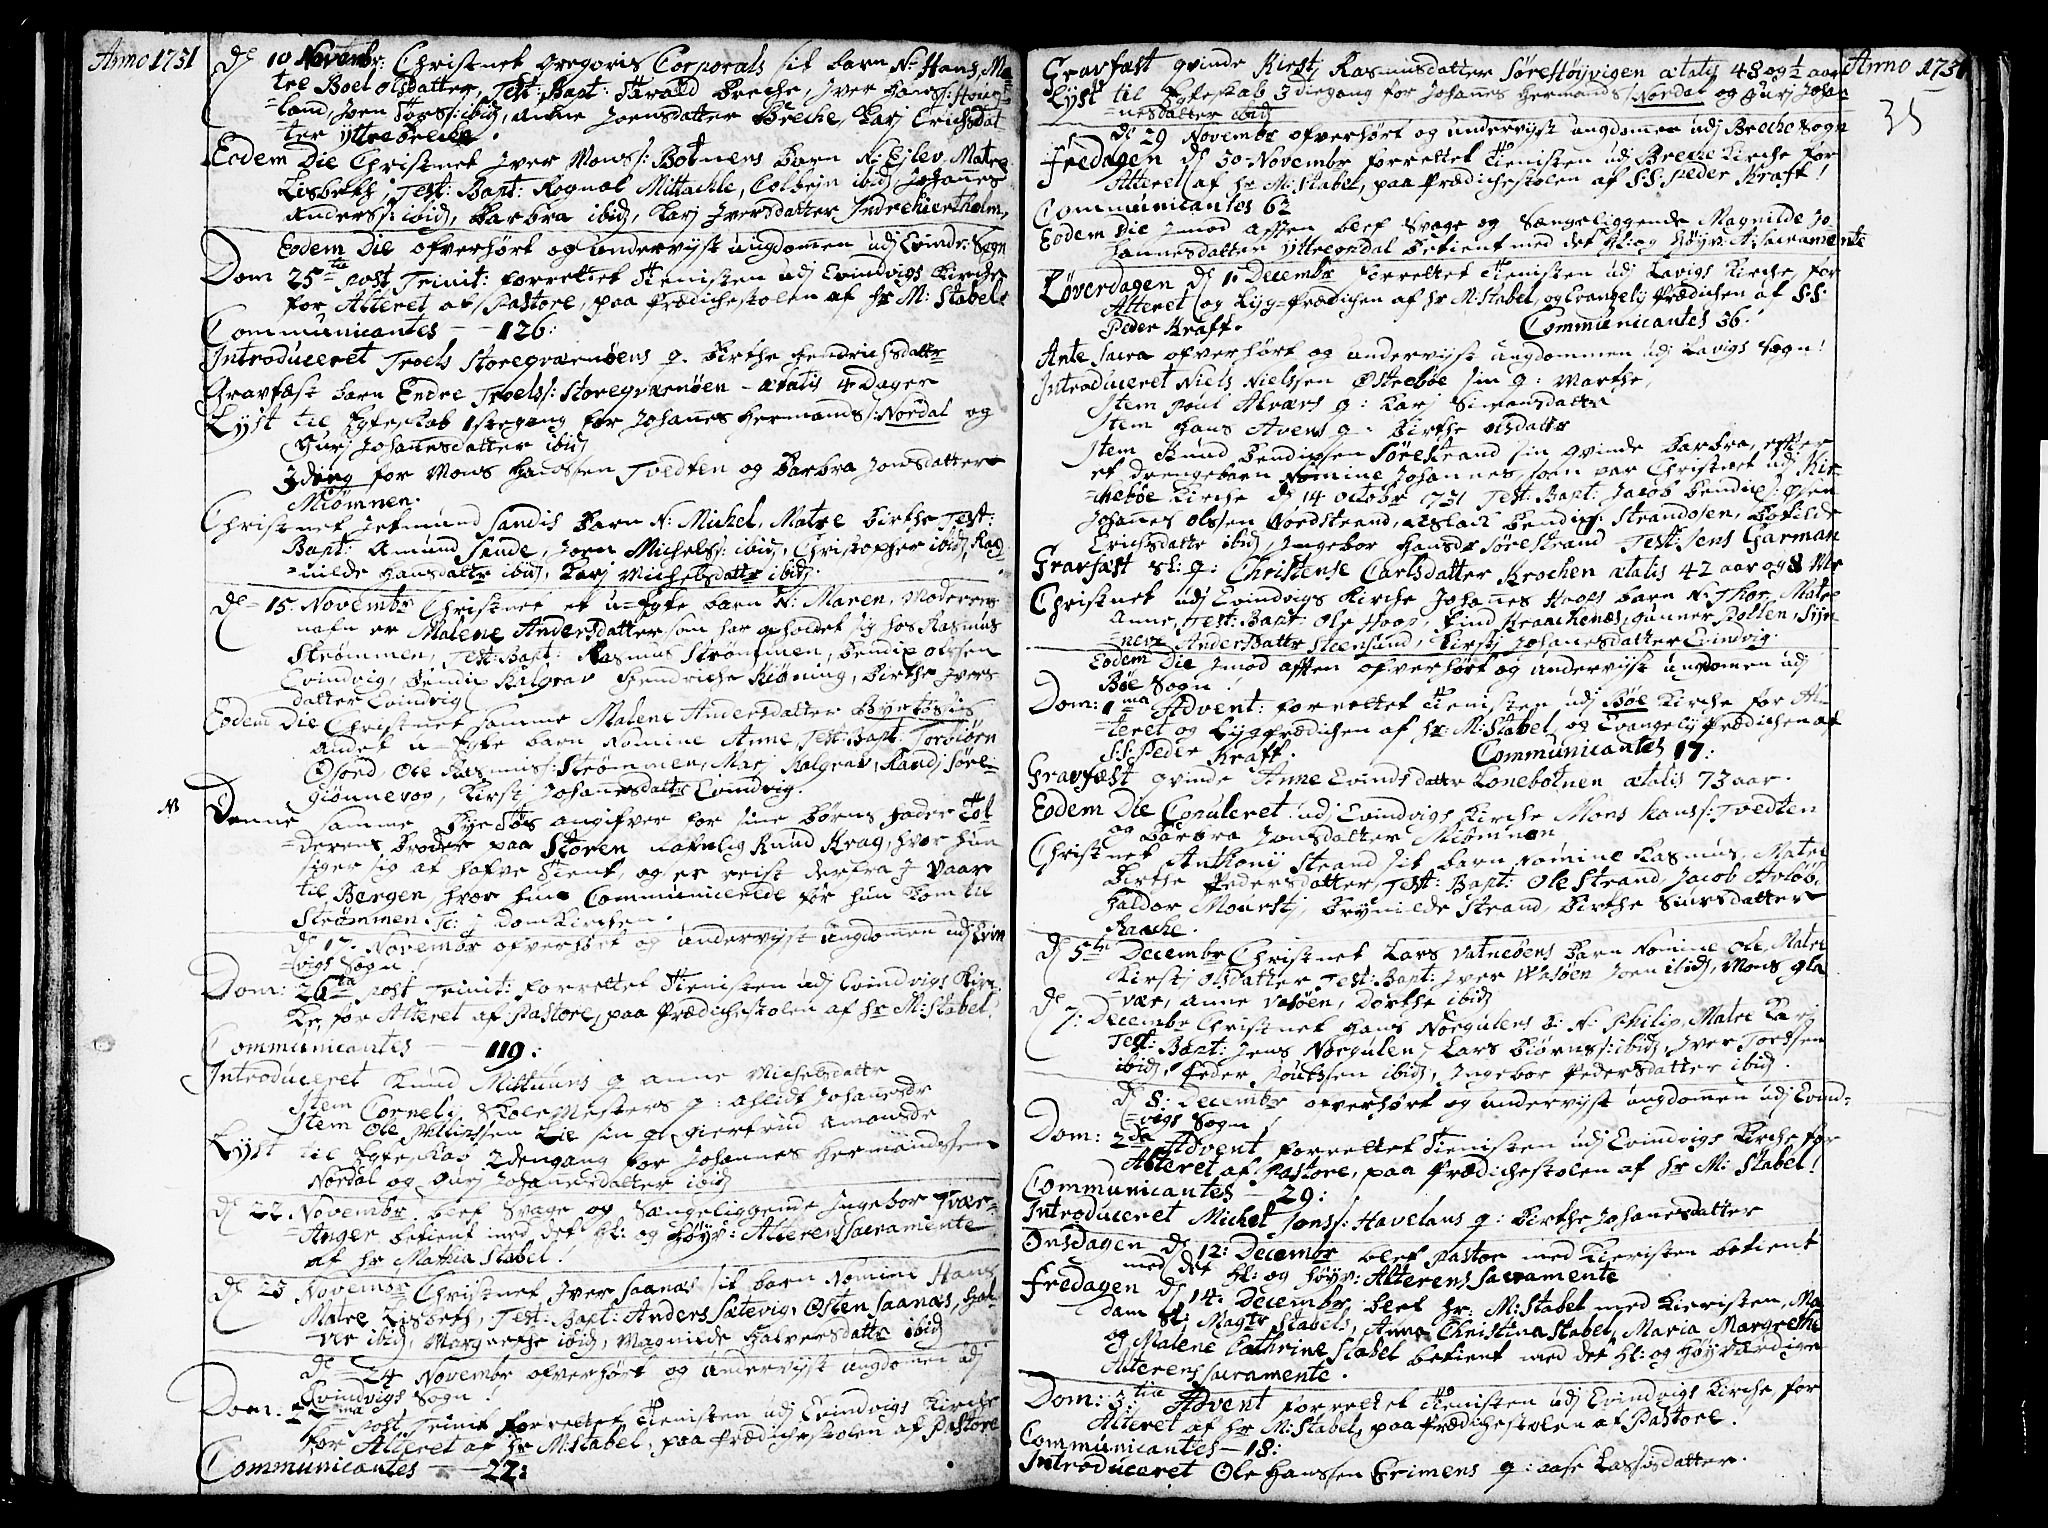 Anno 1731
d. 10 Novembr: Christnet Gregoris Corporals sit barn N: Hans, Ma-
tre Boel olsdatter, Test: Bapt: Harald Breche, Iver Hans
land, Joen ibid, Anne Joensdatter Breche, Karj Erichsdat-
ter Yttrebreche.
Eodem Die Christnet Iver Monss: Botnens barn N: Ejlev, Matre
Lisbeth, Test: Bapt: Rognal Mittachle, Colbejn ibid, Johannes
Anderss: ibid, Barbra ibid, Karj Iversdatter Indrehiertholm,
Eodem Die ofverhørt og undervjst ungdomen udj Evindv: Sogn
Dom 25 ta post Trinit: forrettet Tienisten udj Evindvigs Kirche
for Alteret af Pastore, paa Prædichestolen af hr M: Stabel
Communicantes — 126:
Introduceret Troels Storegværnøens q. Birthe Hendrichsdattr
Gravfæst barn Endre Troelss: Storegværnøen – ætatis 4 Dager
Lyst til Egteskab 1stegang for Johannes Hermands: Nordal og
Gurj Johannesdatter ibid
3dieg for Mons Hanssen Tvedten og Barbra Jonsdatter
Miømnen.
Christnet Jetmund Sandis barn N: Michel, Matre Birthe Test:
Bapt: Amund Sande, Joen Michelss: ibid, Christopher ibid, Rag-
nilde Hansdattr ibid, Karj Michelsdattr ibid.
d. 15 Novembr Christnet et u-Egte barn N: Maren, Moderens
nafn er Malene Andersdatter som har opholdet sig hos Rasmus
Strømmen, Test: Bapt: Rasmus Strømmen, Bendix olssen
Evindvig, Bendix Halgrav Hendriche Kiøning, Birthe Ivers
datter Evindvig
Eodem Die Christnet samme Malene Andersdatter Byetøsus
Andet u-Egte barn, Nomine Anne, Test: Bapt: Torbiørn
Ole Rasmuss: Strømmen, Marj Halgrav, Randj Søre-
giønnevog, Kirstj Johannesdattr Evindvig.
NB Denne samme Bye Tøs angifver for sine Børns fader Tol-
derens Broder paa Støren nafnlig Knud Krag, hvor hun
siger sig at hafve tient, og er reist derfra I Vaar
til Bergen, hvor hun Communicerede før hun kom til
Strømmen. Sc: j Domkirchen.
d. 17 Novembr ofverhørt og undervjst ungdomen udj Evin
vigs Sogn
Dom: 26 ta post Trinit: forrettet Tienisten udj Evindvigs Kir-
ke, for Alteret af Pastore, paa Prædichestolen af hr M: Stabel,
Communicantes — 119:
Introduceret Knud Mittuuns q Anne Michelsdattr
Item Cornelj Skolemesters q: Johannesdr
Item Ole Phillipssen Lie sin q Giertrud Amonsdr
Lyst til Egteskab 2dengang for Johannes Hermandssen
Nordal og Gurj Johannesdatter ibid
d. 22 Novembr blef Svage og Sængeliggende Ingebor Tvær-
Anger betient med det hl: og Høyv: Alterens Sacramente
af hr Mathia Stabel!
d. 23 Novembr Christnet Iver Saanæs sit barn Nomine Hans
Matre Lisbeth, Test: Bapt: Anders Sætevig, Østen Saanæs, Hal-
ibid, Margrethe ibid, Magnilde Halversdattr ibid
d. 24 Novembr ofverhørt og undervjst ungdomen udj
Evindvigs Sogn!
Dom: 27 ma post Trinit forrettet Tienisten udj Evindvigs Kirche
for Alteret af hr M: Stabel, paa Prædichestolen af Pastore
Communicantes — 22:
Anno 1731
35
Gravfæst qvinde Kirstj Rasmusdatter Sørestøyvigen ætatis 48 og ½ aar
Lyst til Egteskab 3diegang for Johannes Hermands: Nordal og Gurj Johan-
nesdatter ibid
d. 29 Novembr ofverhørt og undervjst ungdomen udj Breche Sogn
Fredagen d. 30 Novembr forrettet Tienisten udj Breche Kirche for
Alteret af hr M: Stabel, paa Prædichestolen af S:S: Peder Kraft!
Communicantes 62
Eodem Die Imod Aften blef Svage og Sængeliggende Magnilde Jo-
hannesdatter betient med det hl: og Høyv: A: Sacramente
Løverdagen d. 1. Decembr forrettet Tienisten udj Lavigs Kirche, for
Alteret og Lyg-Prædichen af hr M: Stabel, og Evangelij Prædichen af S:S:
Peder Kraft. Communicantes 56.
Ante Sacra ofverhørt og undervjst ungdommen udj Lavigs Sogn!
Introduceret Niels Nielssen Østrebøe sin q: Marthe,
Item Poul Alværs q: Karj Simensdattr
Item Hans Avens q: Birthe olsdattr
Item Knud Bendixsen Sørestrand sin qvinde Barbra, efter
et drengebarn Nomine Johannes, som var Christnet udj Kir-
hebøe Kirche d. 14 octobr 1731 Test: Bapt: Jacob Bendixs: Øsen
Johannes Olssen Nordstrand, Aslach Bendixs: Strandosen, Botilde
Erichsdattr ibid, Ingebor Hansdr Sørestrand Test: Jens Garman
Gravfæst Sl: q: Christense Carlsdatter Krochen ætatis 42 aar og 8 Mr
Christnet udj Evindvigs Kirche Johannes Hoops barn N: Thor, Matre
Anne, Test: Bapt: Ole Hoop, Find Kraachenæs, Gunner Polten, Syn-
neve Andersdattr Steensund, Kirstj Johannesdatter Evindvig.
Eodem Die Imod aften ofverhørt og undervjst ungdomen udj
Bøe Sogn!
Dom: 1 ma Advent: forrettet Tienisten udj Bøe Kirche for Al-
teret og Lygprædichen af hr M: Stabel, og Evangelij Prædichen af
S:S: Peder Kraft. Communicantes 17:
Gravfæst qvinde Anne Evindsdattr Lonebotnen ætatis 73 aar.
Eodem Die Copuleret udj Evindvigs Kirche Mons Hanss: Tvedten
og Barbra Jonsdatter Miømnen
Christnet Anthonij Strand sit barn Nomine Rasmus, Matre
Birthe Pedersdatter, Test: Bapt: Ole Strand, Jacob Avløb,
Haldor Mourstj, Brynilde Strand, Birthe Siursdatter
Raache.
d. 5te Decembr Christnet Lars Vatneøens barn Nomine Ole, Matre
Kirstj Olsdatter Test: Bapt: Iver Joen ibid, Mons Gla-
vær, Anne Dorthe ibid
d. 7: Decembr Christnet Hans Nørgulens B: N: Philip, Matre Karj
Test: Bapt: Jens Nørgulen, Lars Biørnss: ibid, Iver Tordsen
ibid, Peder Poulssen ibid, Ingebor Pedersdatter ibid.
d. 8: Decembr ofverhørt og undervjst ungdomen udj Evind-
vigs Sogn!
Dom: 2 da Advent forrettet Tienisten udj Evindvigs Kirche for
Alteret af Pastore, paa Prædichestolen af hr M: Stabel!
Communicantes — 29:
Introduceret Michel Jonss: Havelans q: Birthe Johannesdatter
Onsdagen d. 12: Decembr blef Pastor med Kieristen betient
med det hl: og Høyv: Alterens Sacramente
Fredagen d. 14. Decembr blef hr: M: Stabel med Kieristen, Ma
dam Sl: Magtr Stabels, Anna Christina Stabel, Maria Margrethe
og Malene Cathrine Stabel betient med det hl: og Høyværdige
Alterens Sacramente.
Dom: 3 tia Advent forrettet Tienisten udj Evindvigs Kirche, for
Alteret af hr M: Stabel, paa Prædichestolen af Pastore.
Communicantes – 18:
Introduceret Ole Hanssen Erimens q: Aase Lassesdatter.